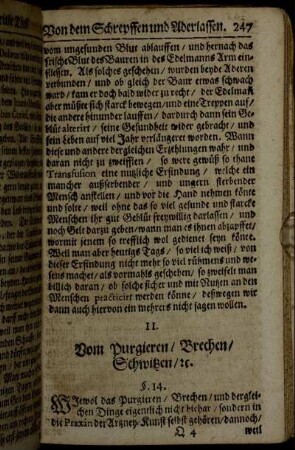 Von dem Schreyffen und Aderlassen. 247
vom ungesunden Blut ablauffen / und hernach das
frische Blut des Bauren in des Edelmanns Arm ein-
fliessen. Als solches geschehen / wurden beyde Aderen
verbunden / und ob gleich der Baur etwas schwach
ward / kan er doch bald wider zu recht / der Edelmañ
aber müßte sich starck bewegen / und eine Treppen auf /
die andere hinunder lauffen / dardurch dann sein Ge-
blüt alteriert / seine Gesundheit wider gebracht / und
sein Leben auf viel Jahr verlängeret worden. Wann
diese und andere dergleichen Erzehlungen wahr / und
daran nicht zu zweifflen / so were gewüß so thane
Transfusion eine nutzliche Erfindung / welche ein
mancher außserbender / und ungern sterbender
Mensch anstellen / und vor die Hand nehmen könte
und solte / weil ohne das so viel gesunde und starcke
Menschen ihr gut Geblüt freywillig darlassen / und
noch Gelt darzu geben / wann man es ihnen abzapffet /
wormit jenem so trefflich wol gedienet seyn könte.
Weil man aber heutigs Tags / so viel ich weiß / von
dieser Erfindung nicht mehr so viel rühmens und we-
sens machet / als vormahls geschehen / so zweiflet man
billich daran / ob solche sicher und mit Nutzen an den
Menschen practiciert werden könne / deßwegen wir
dann auch hiervon ein mehrers nicht sagen wollen.
II.
Vom Purgieren / Brechen /
Schwitzen / ec.
§. 14.
WIewol das Purgieren / Brechen / und derglei-
chen Dinge eigentlich nicht hiehar / sondern in
die Praxin der Artzney-Kunst selbst gehören / dannoch /
Q 4 weil